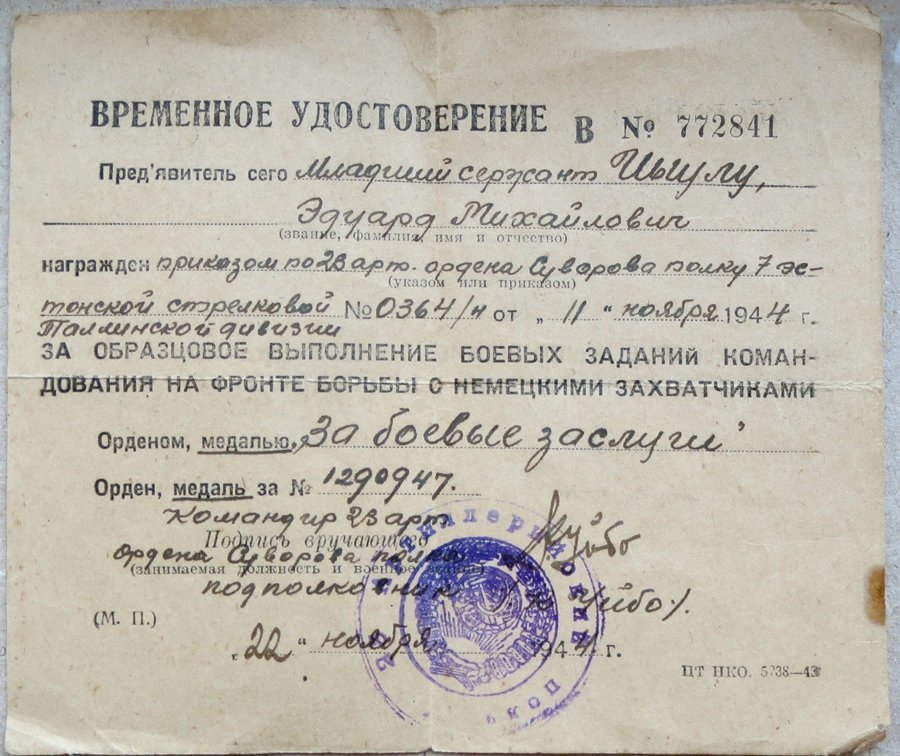 ВРЕМЕННОЕ УДОСТОВЕРЕНИЕ В № 772841
Пред'явитель сего Младший сержант
Эдуард Михайлович
(звание, фамилия, имя и отчество)
награжден приказом по 23 арт. ордена Суворова полку 7 эс-
(указом или приказом)
тонской стрелковой № 0364/н от „ 11 " ноября 1944 г.
Таллинской дивизии
ЗА ОБРАЗЦОВОЕ ВЫПОЛНЕНИЕ БОЕВЫХ ЗАДАНИЙ КОМАН-
ДОВАНИЯ НА ФРОНТЕ БОРЬБЫ С НЕМЕЦКИМИ ЗАХВАТЧИКАМИ
Орденом, медалью „За боевые заслуги"
Орден, медаль за № 1290947.
Командир 23 арт
Подпись вручающего
ордена Суворова полка
(занимаемая должность и военное звание)
подполковник Уйбо).
(М. П.)
„ 22 " ноября 1944 г.
ЦТ НКО.
Артиллерийский полк